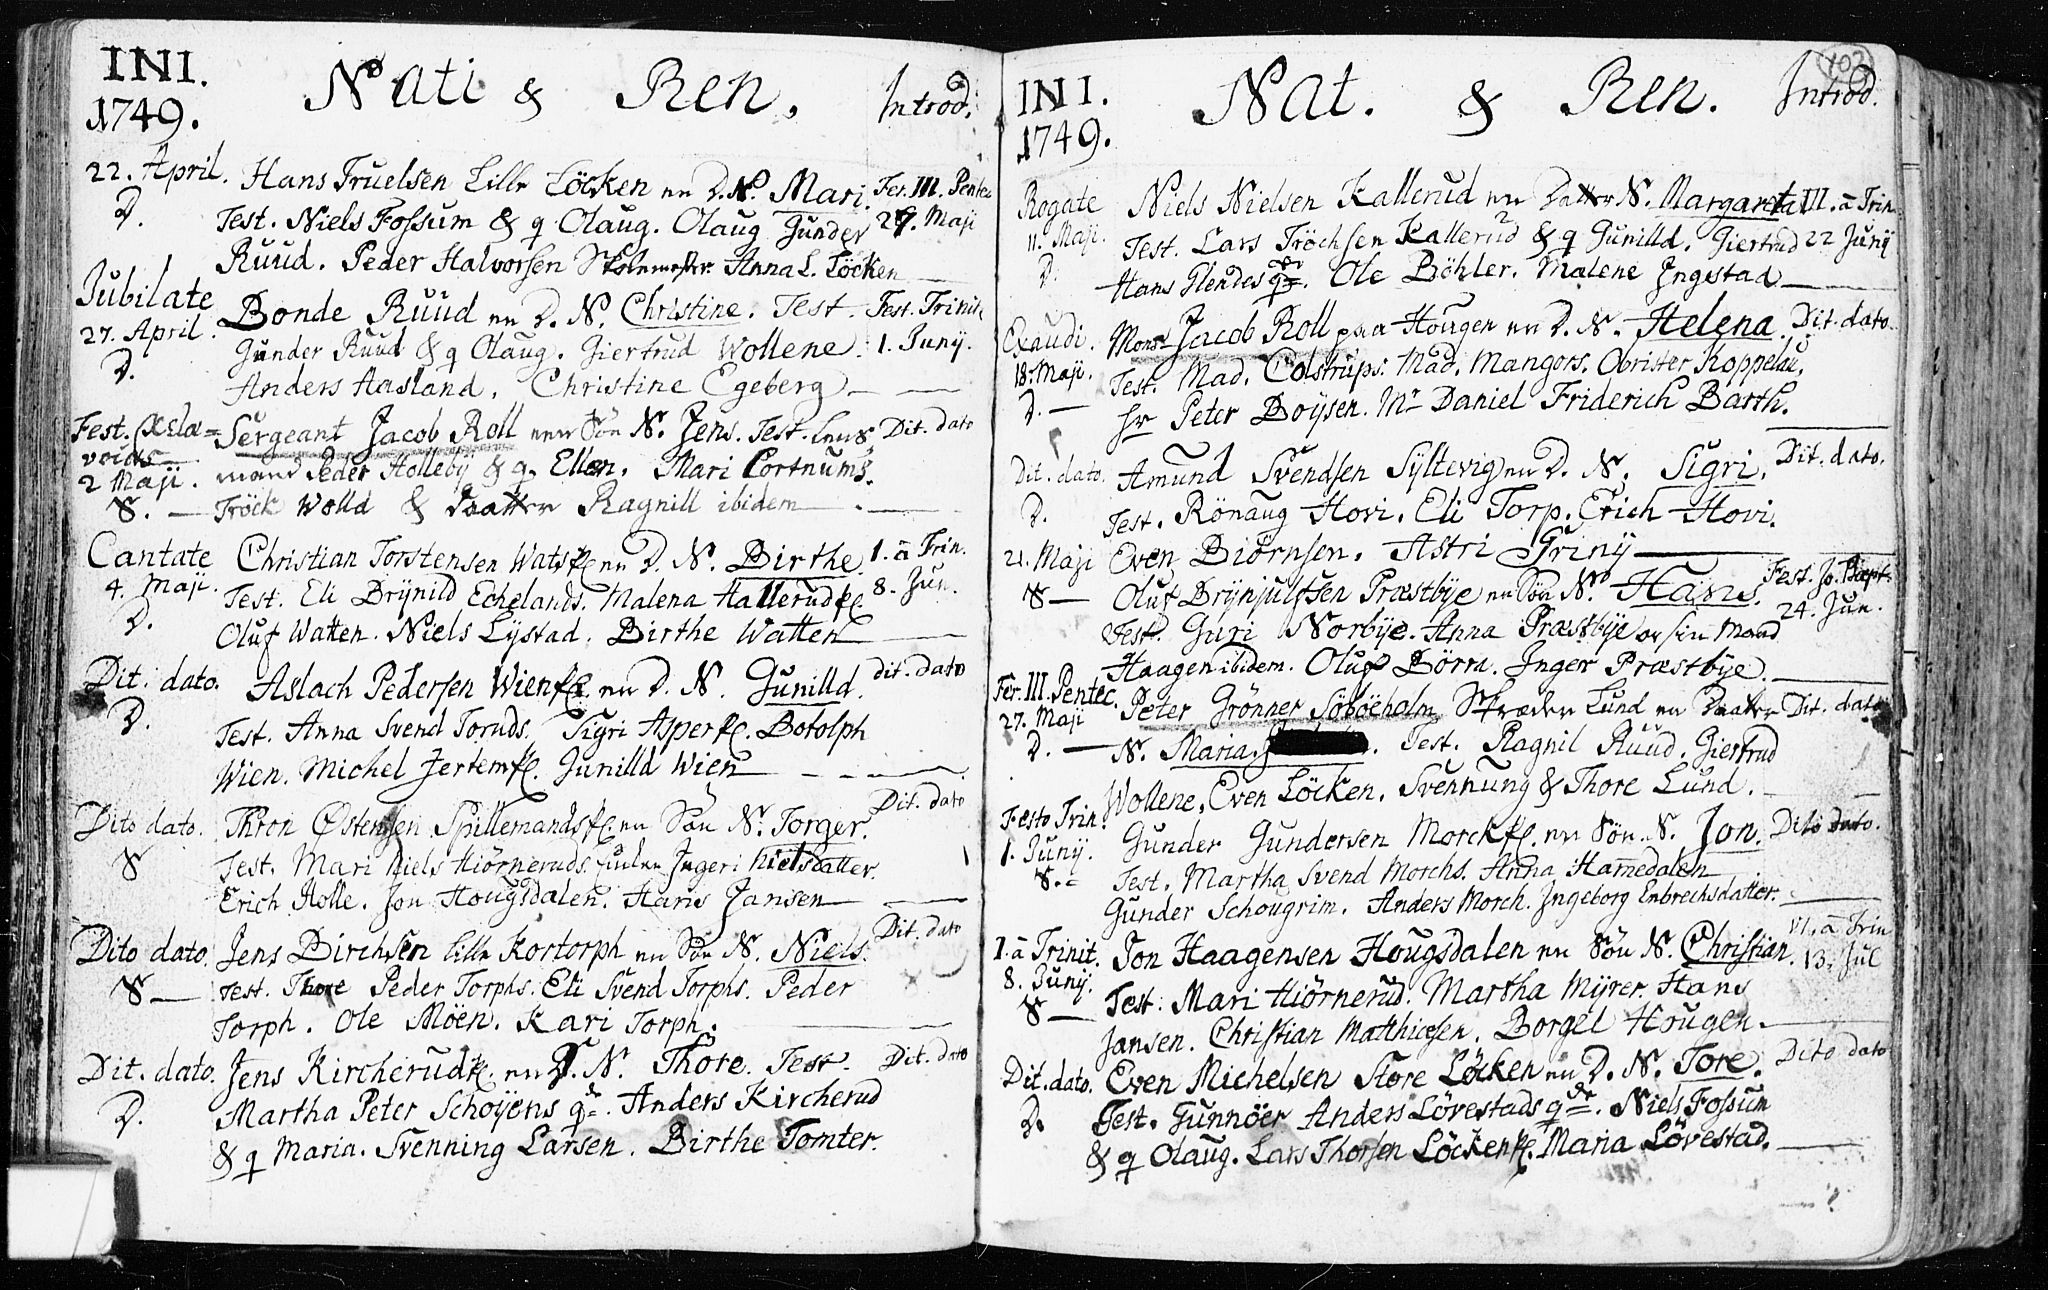 INI.
1749.
Nati & Ren.
Introd.
22. April. Hans Truelsen Lille Löcken en D. N. Mari. Fer. III. Pentec
D. Test. Niels Fossum & q Olaug. Olaug Gunder 27. Maji
Ruud. Peder Halvorsen Skolemester. Anna L. Löcken
Jubilate Bonde Ruud en D. N. Christine. Test. Fest. Trinit.
27. April. Gunder Ruud & q Olaug. Giertrud Wollene. 1. Juny.
D. Anders Aasland. Christine Egeberg
Fest. Sergeant Jacob Roll een Sön N. Jens. Test. Lens Dit. dato
2 Maji. mand Peder Holleby & q. Ellen. Mari Cortnums.
S. Tröck Wolld & Daatter Ragnill ibidem
Cantate Christian Torstensen Wats en D. N. Birthe. 1. ā Trin.
4. Maji. Test. Eli Brynild Echelands. Malena Hallerud 8. Jun.
D. Oluf Watten. Niels Lystad. Birthe Watten
Dit. dato. Aslach Pedersen Wien en D. N. Gunilld. dit. dato
D. Test. Anna Svend Toruds. Sigri Asper. Botolph
Wien. Michel Jertem. Gunilld Wien
Dito dato. Thron Østensen Spillemands en Sön N. Torger. Dit. dato
S Test. Mari Niels Hiörneruds. Ingeri Nielsdatter.
Erich Holle. Jon Hougsdalen. Hans Jansen
Dito dato. Jens Birchsen Lille Kortorph en Sön N. Niels. Dit. dato
S Test. Thore Peder Torphs. Eli Svend Torphs. Peder
Torph. Ole Möen. Kari Torph.
Dit. dato. Jens Kircherud en D. N. Thore. Test. Dit. dato
D. Martha Peter Schoyens q. Anders Kircherud
& q Maria. Svenning Larsen. Birthe Tomter.
102
INI.
1749.
Nat. & Ren.
Introd.
Rogate Niels Nielsen Kallerud en Datter N. Margareta III. ā Trin
11. Maji. Test. Lars Tröchsen Kallerud & q Gunilld. Giertrud 22 Juny
D. Hans Plendes q. Ole Böhler. Malene Ingstad
Exaudi. Monsr Jacob Roll paa Hougen en D. N. Helena. Dit. dato.
18. Maji. Test. Mad. Colstrups. Mad. Mangors. Obrister Koppelau.
D. Hr Peter Boysen. Mr Daniel Friderich Barth.
Dit. dato. Amund Svendsen Syltevig en D. N. Sigri. Dit. dato.
D. Test. Rönaug Hovi. Eli Torp. Erich Hovi.
Even Biörnsen. Astri Griny
21. Maji Oluf Brynjulfsen Præstbye en Sön N. Hans. Fest. Jo. Bapt.
S Test. Guri Norbye. Anna Præstbye og sin Mand 24. Jun.
Haagen ibidem. Oluf Börra. Inger Præstbye.
Fer. III. Pentec. Peter Grönner Söböeholm Skræder Lund en Daatter Dit. dato
27. Maji N. Maria. Test. Ragnil Ruud. Giertrud
D. Wollene. Even Löcken. Svennung & Thore Lund.
Festo Trin. Gunder Gundersen Morck en Sön N. Jon. Dito dato.
1. Juny. Test. Martha Svend Morchs. Anna Hamedalen
S. Gunder Schougrim. Anders Morch. Ingeborg Enbrechsdatter.
1. ā Trinit. Jon Haagensen Hougsdalen en Sön N. Christian. VI. ā Trin
8. Juny. Test. Mari Hiörnerud. Martha Myrer. Hans 13. Jul
S Jansen. Christian Matthiesen. Borgel Hougen.
Dit. dato. Even Michelsen Store Löcken en D. N. Tore. Dito dato
D. Test. Gunnöer Anders Lövestads q. Niels Fossum
& q Olaug. Lars Thorsen Löcken. Maria Lövestad.